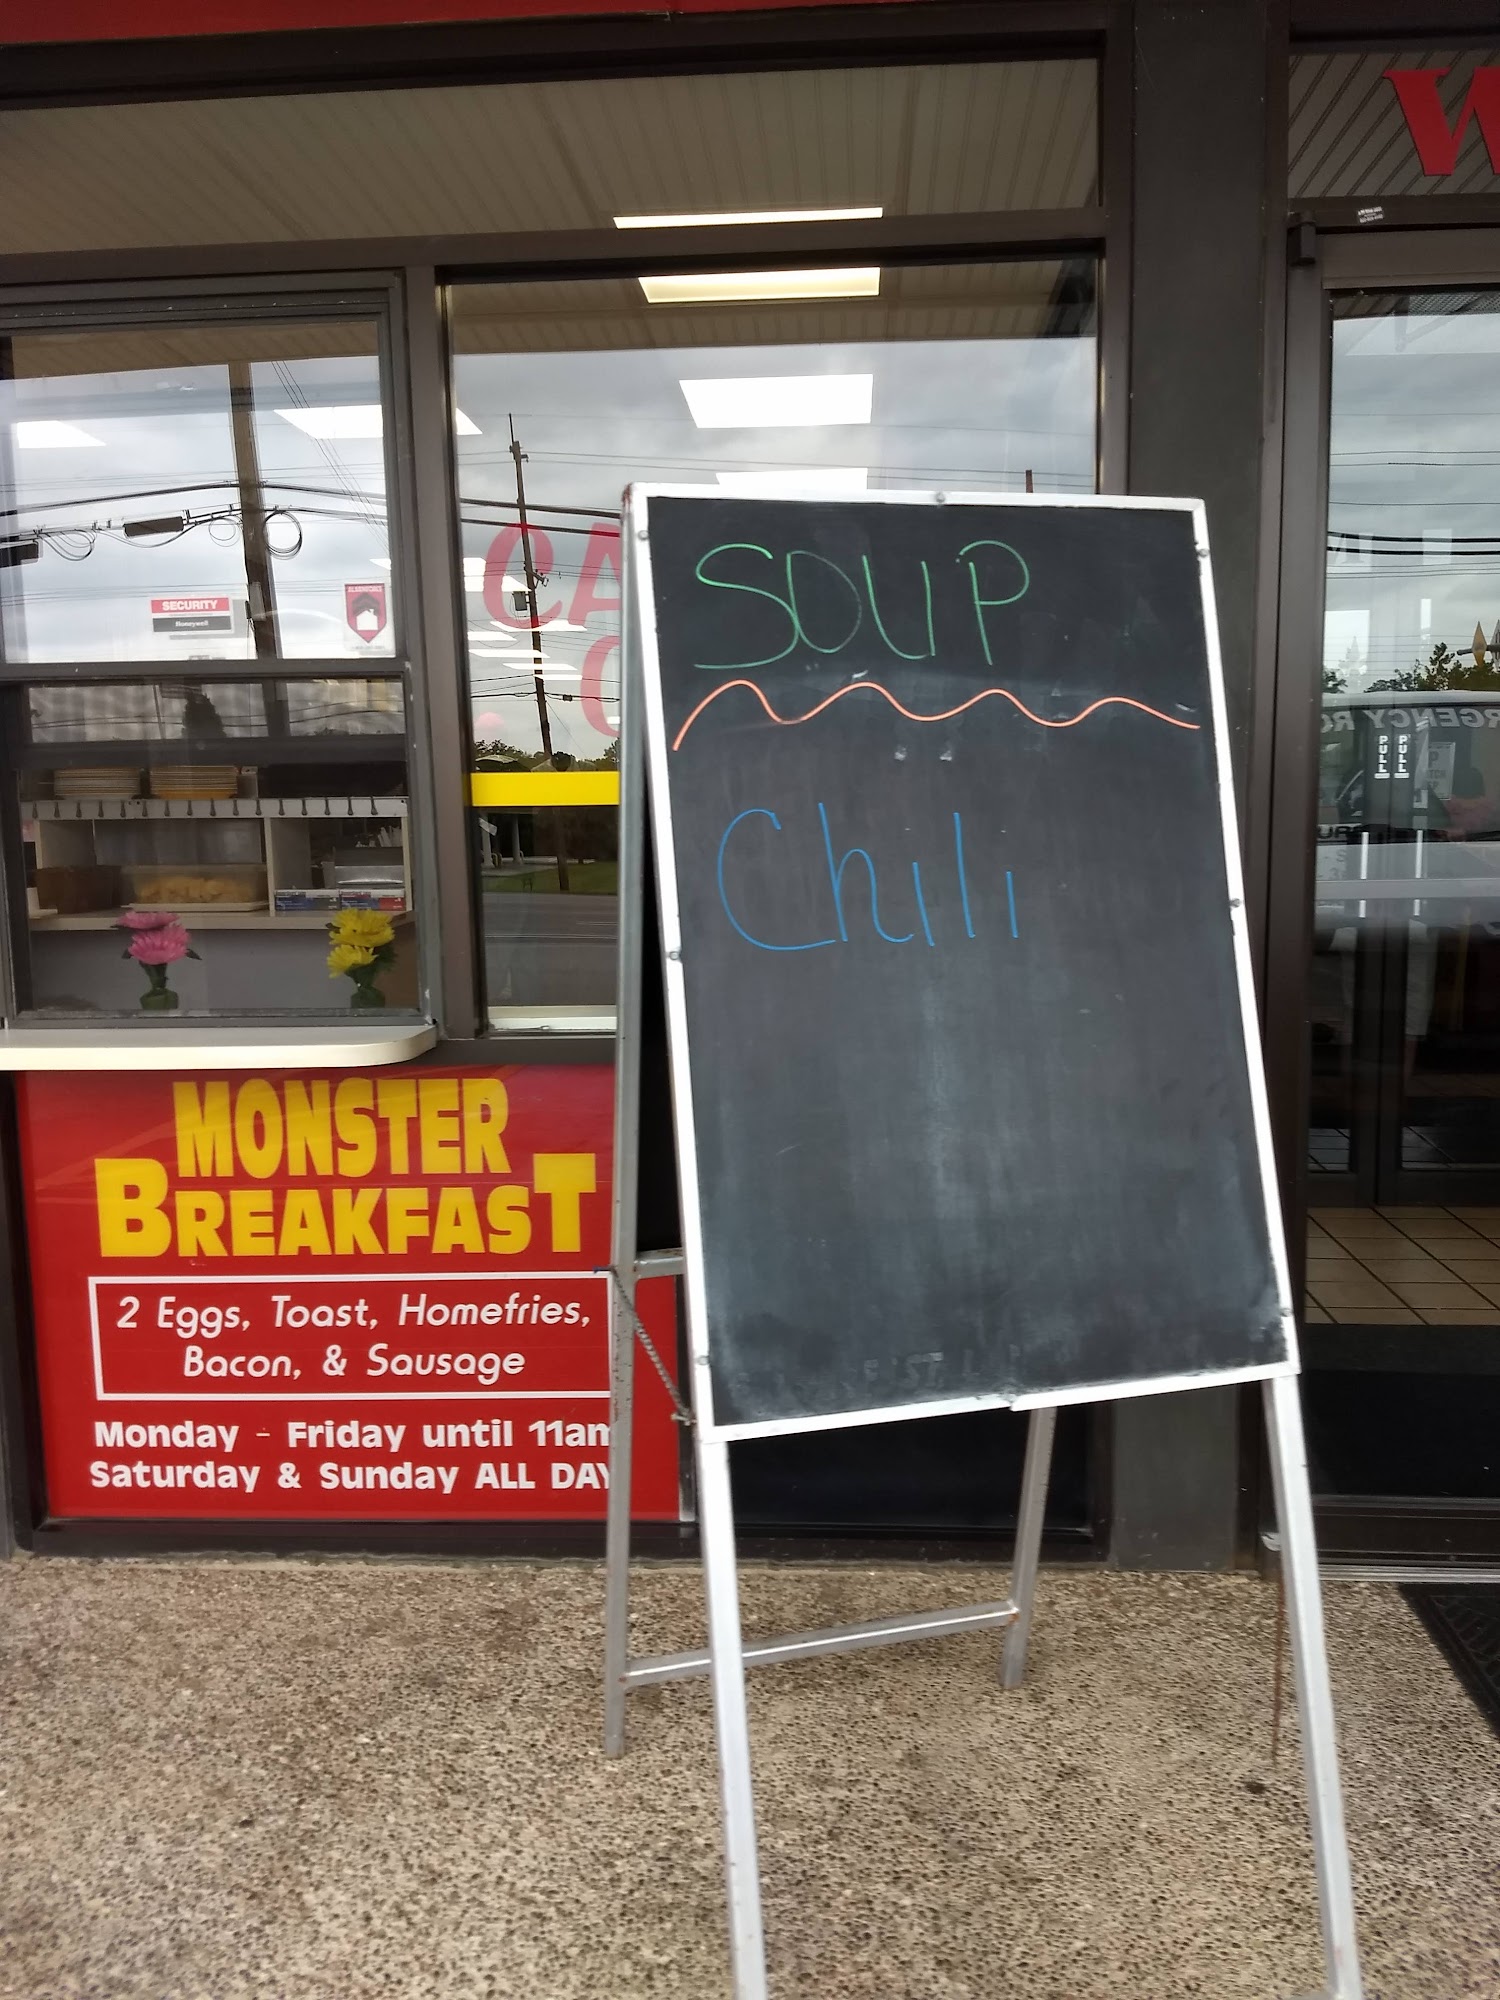 SECURITY
Honeywell
CA
SOUP
Chili
PULL
PULL
MONSTER
BREAKFAST
2 Eggs, Toast, Homefries,
Bacon, & Sausage
Monday - Friday until 11am
Saturday & Sunday ALL DAY
W